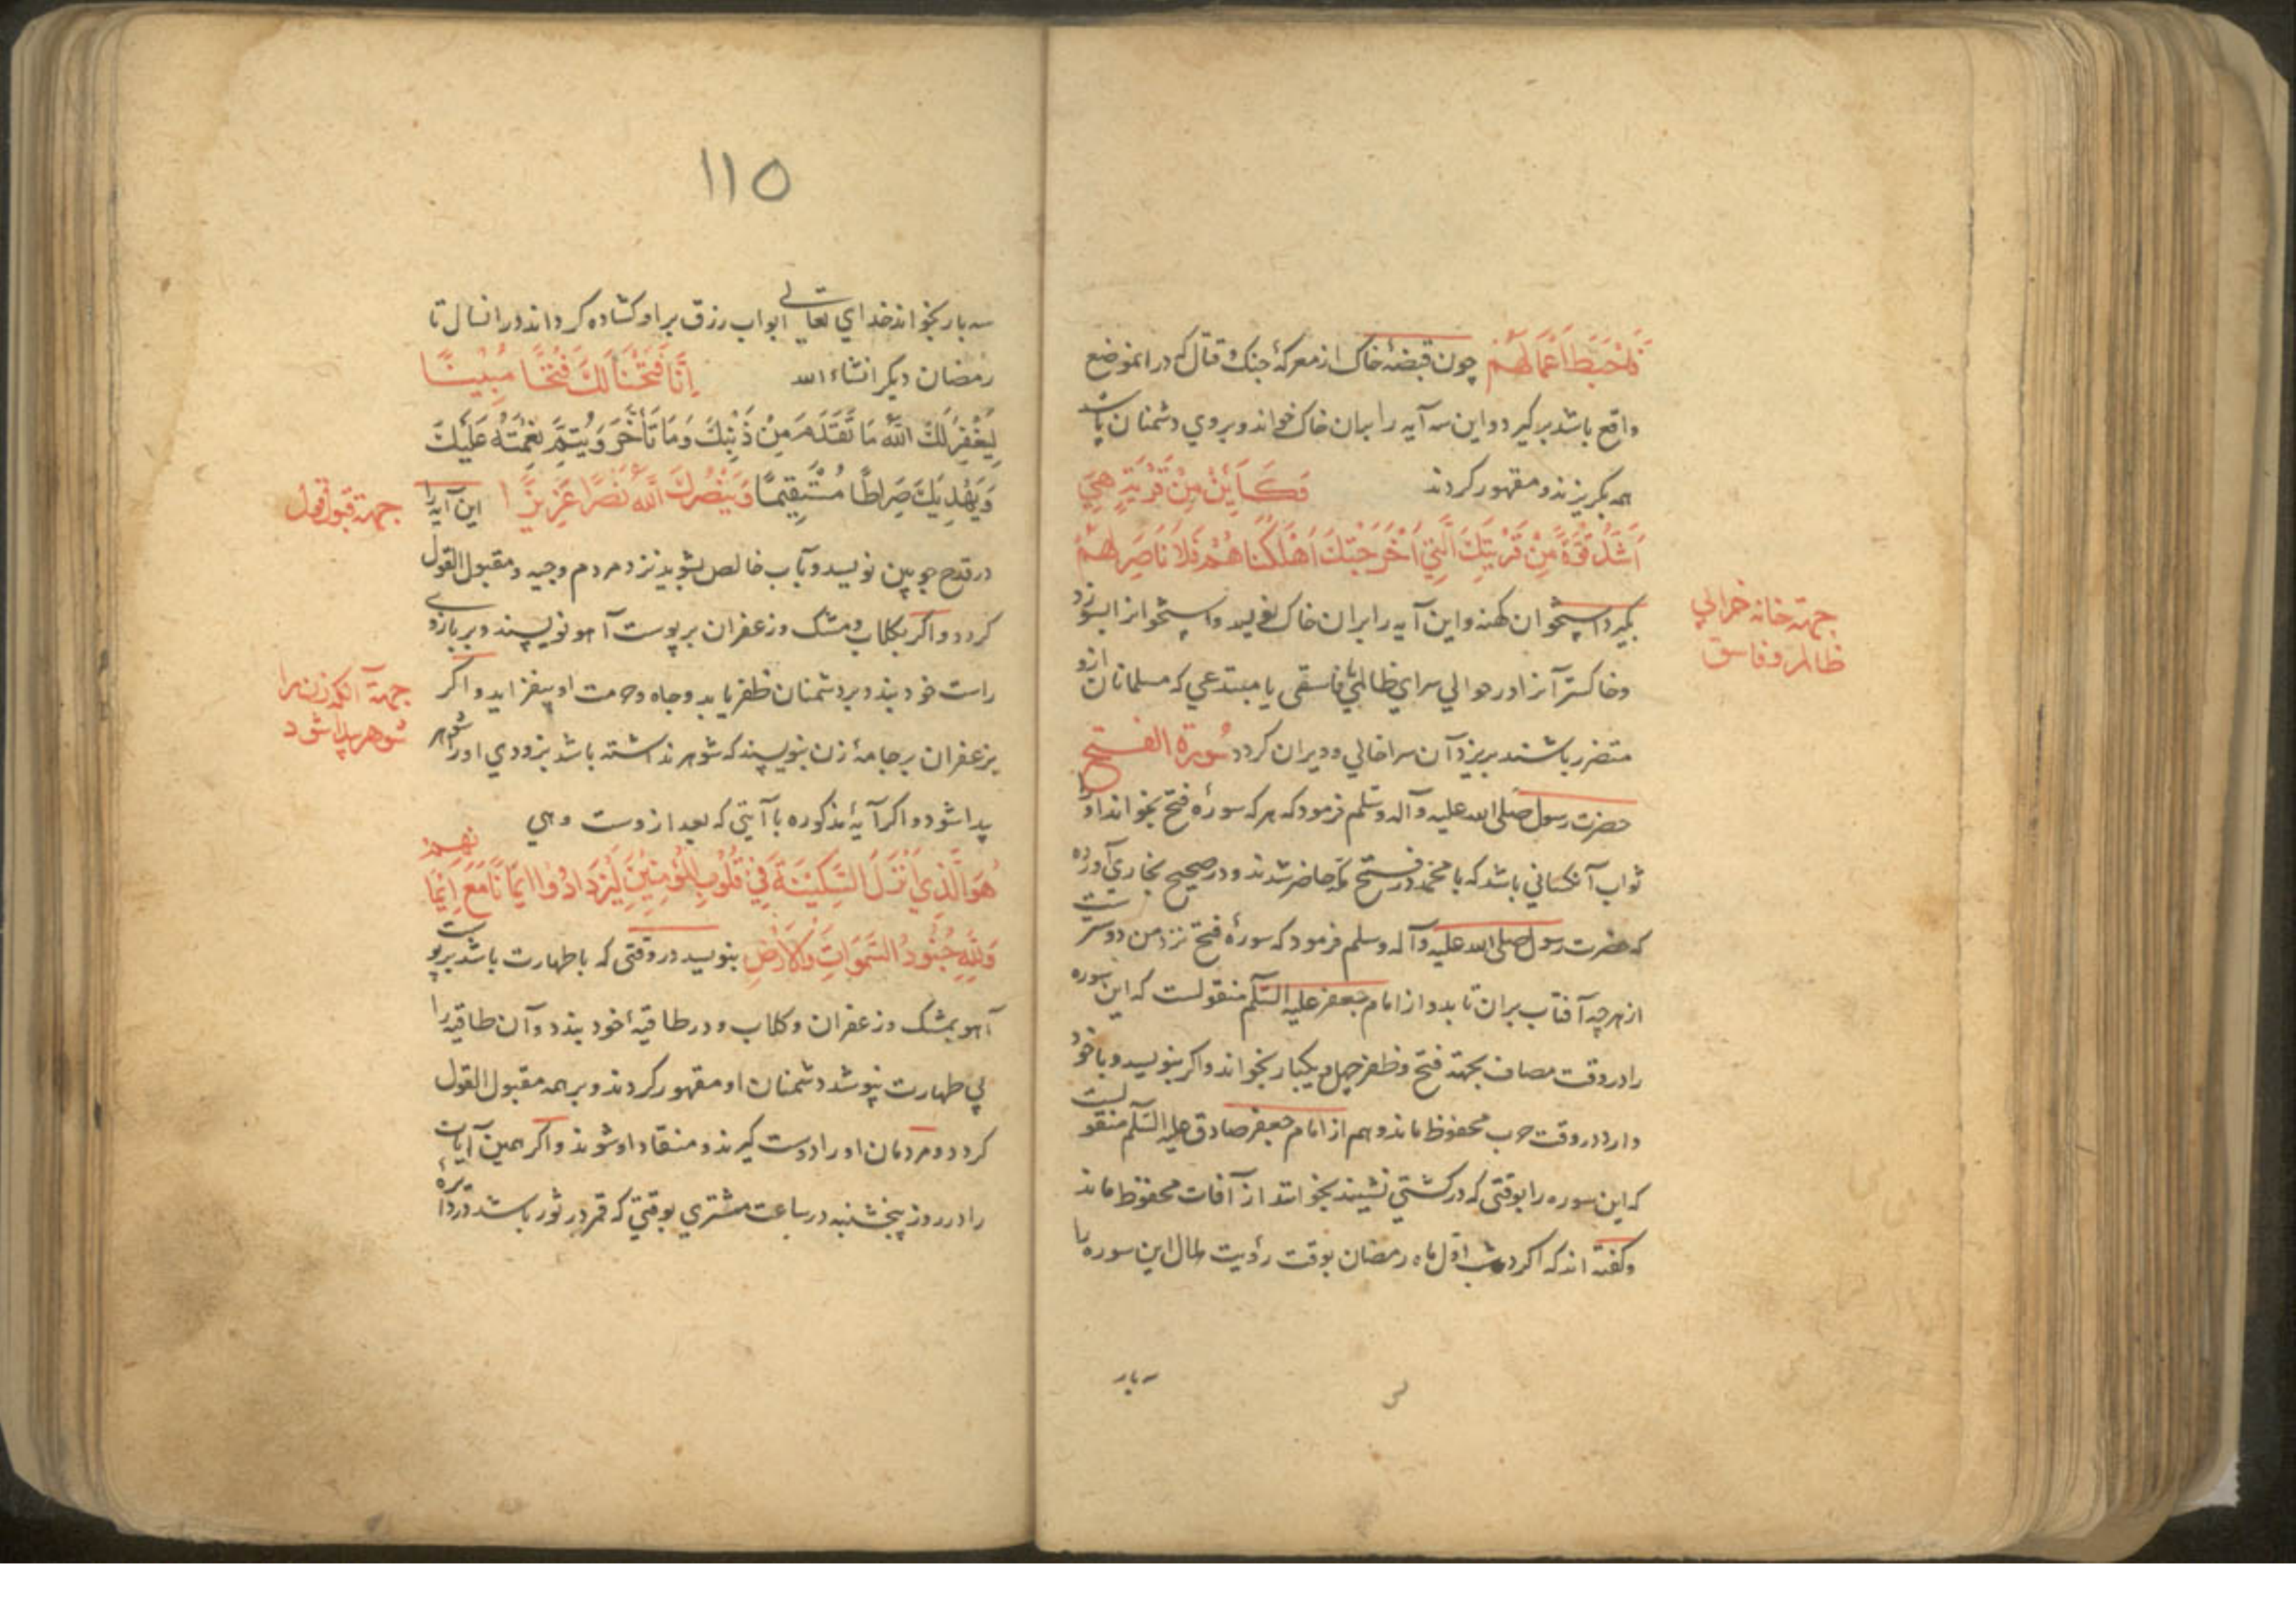 فَاَحْبَطَ اَعْمَالَهُمْ چون قبضهٔ خاک از معرکهٔ جنک و قتال که در انموضع
واقع باشد برکیرد و این سه آیه را بران خاک خواند و بروی دشمنان پاشد
همه بکریزند و مقهور کردند فَكَاَيِّنْ مِنْ قَرْيَةٍ هِيَ
اَشَدُّ قُوَّةً مِنْ قَرْيَتِكَ الَّتِي اَخْرَجَتْكَ اَهْلَكْنَاهُمْ فَلَا نَاصِرَ لَهُمْ
بکیرد استخوان کهنه و این آیه را بران خاک نویسد و استخوانرا بسوزد
جهة خانه خرابی
ظالم و فاسق
و خاکستر آنرا در حوالی سرای ظالمی یا فاسقی یا مبتدعی که مسلمانان ازو
متضرر باشند بریزد آن سرا خالی و ویران کردد سُورة الفتح
حضرت رسول صلی الله علیه وآله وسلم فرمود که هر که سورهٔ فتح بخواند او را
ثواب آنکسانی باشد که با محمد در فتح مکه حاضر شدند و در صحیح بخاری آورده
که حضرت رسول صلی الله علیه وآله وسلم فرمود که سورهٔ فتح نزد من دوستر است
از هرچه آفتاب بران تابد و از امام جعفر علیه السّلم منقولست که این سوره
را در وقت مصاف بجهة فتح و ظفر چهل و یکبار بخواند و اکر بنویسد و با خود
دارد در وقت حرب محفوظ ماند و هم از امام جعفر صادق علیه السّلم منقولست
که این سوره را بوقتی که در کشتی نشینند بخوانند از آفات محفوظ ماند
و کفته اند که اکر در شب اوّل ماه رمضان بوقت رؤیت هلال این سوره را
سه بار
۱۱۵
سه بار بخواند خدای تعالی ابواب رزق بر او کشاده کرداند در انسال تا
رمضان دیکر انشاء الله اِنَّا فَتَحْنَا لَكَ فَتْحًا مُبِينًا
لِيَغْفِرَ لَكَ اللهُ مَا تَقَدَّمَ مِنْ ذَنْبِكَ وَمَا تَأَخَّرَ وَيُتِمَّ نِعْمَتَهُ عَلَيْكَ
وَيَهْدِيَكَ صِرَاطًا مُسْتَقِيمًا وَيَنْصُرَكَ اللهُ نَصْرًا عَزِيزًا این آیه را
جهة قبول قول
در قدح چوبین نویسد و بآب خالص بشوید نزد مردم وجیه و مقبول القول
کردد و اکر بکلاب و مشک و زعفران بر پوست آهو نویسند و بر بازوی
راست خود بندد بر دشمنان ظفر یابد و جاه و حرمت او بیفزاید و اکر
جهة آنکه زن را
شوهر پیدا شود
بزعفران بر جامهٔ زن بنویسند که شوهر نداشته باشد بزودی او را شوهر
پیدا شود و اکر آیهٔ مذکوره با آیتی که بعد ازوست و هی
هُوَ الَّذِي اَنْزَلَ السَّكِينَةَ فِي قُلُوبِ الْمُؤْمِنِينَ لِيَزْدَادُوا اِيمَانًا مَعَ اِيمَانِهِمْ
وَلِلّٰهِ جُنُودُ السَّمَوَاتِ وَالْاَرْضِ بنویسد در وقتی که با طهارت باشد بر پوست
آهو بمشک و زعفران و کلاب و در طاقیهٔ خود بندد و آن طاقیه را
بی طهارت نپوشد دشمنان او مقهور کردند و بر همه مقبول القول
کردد و مردمان او را دوست کیرند و منقاد او شوند و اکر همین آیات
را در روز پنجشنبه در ساعت مشتری بوقتی که قمر در ثور باشد در دایرهٔ